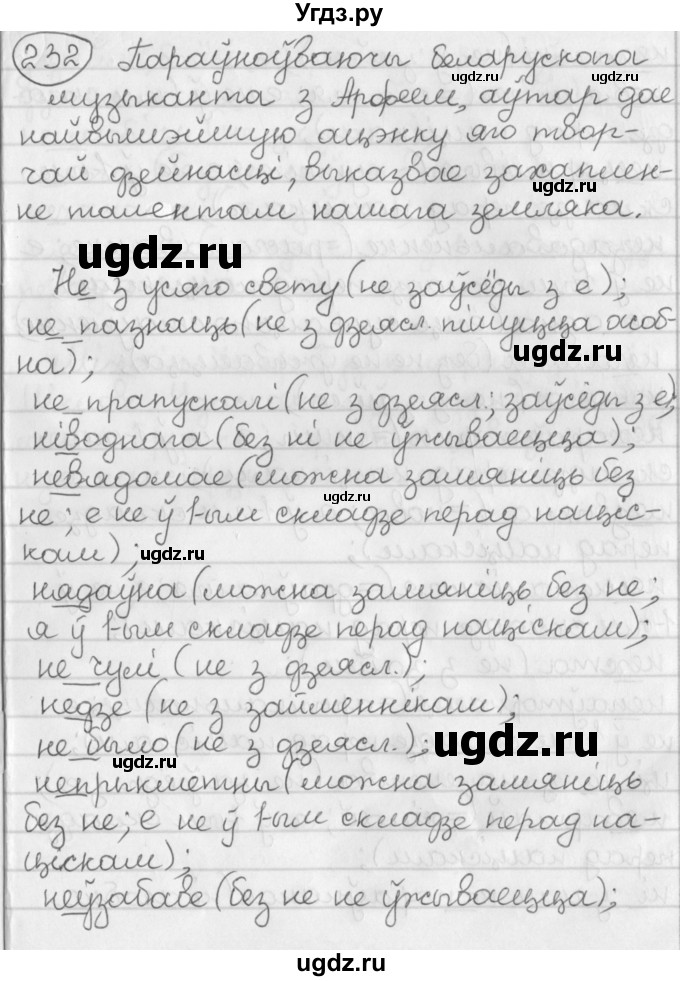 Угдз.ру
232 Параўноўваючы беларускага
ugdz.ru
музыканта з Арфеем, аўтар дае
ugdz.ru
найвышэйшую ацэнку яго твор-
чай дзейнасці, выказвае захаплен-
ugdz.ru
не талентам нашага земляка.
ugdz.ru
Не з усяго свету (не заўсёды з е);
не пазнаць (не з дзеясл. пішуцца асоб-
ugdz.ru
на);
не прапускалі (не з дзеясл.; заўсёды з е);
ніводнага (без ні не ўжываецца);
ugdz.ru
невядомае (можна замяніць без
ugdz.ru
не; е не ў 1-ым складзе перад націс-
кам);
ugdz.ru
нядаўна (можна замяніць без не;
я ў 1-ым складзе перад націскам);
не чулі (не з дзеясл.);
ugdz.ru
недзе (не з займеннікам);
не было (не з дзеясл.);
ugdz.ru
непрыкметны (можна замяніць
без не; е не ў 1-ым складзе перад на-
ugdz.ru
ціскам);
неўзабаве (без не не ўжываецца);
ugdz.ru
ugdz.ru